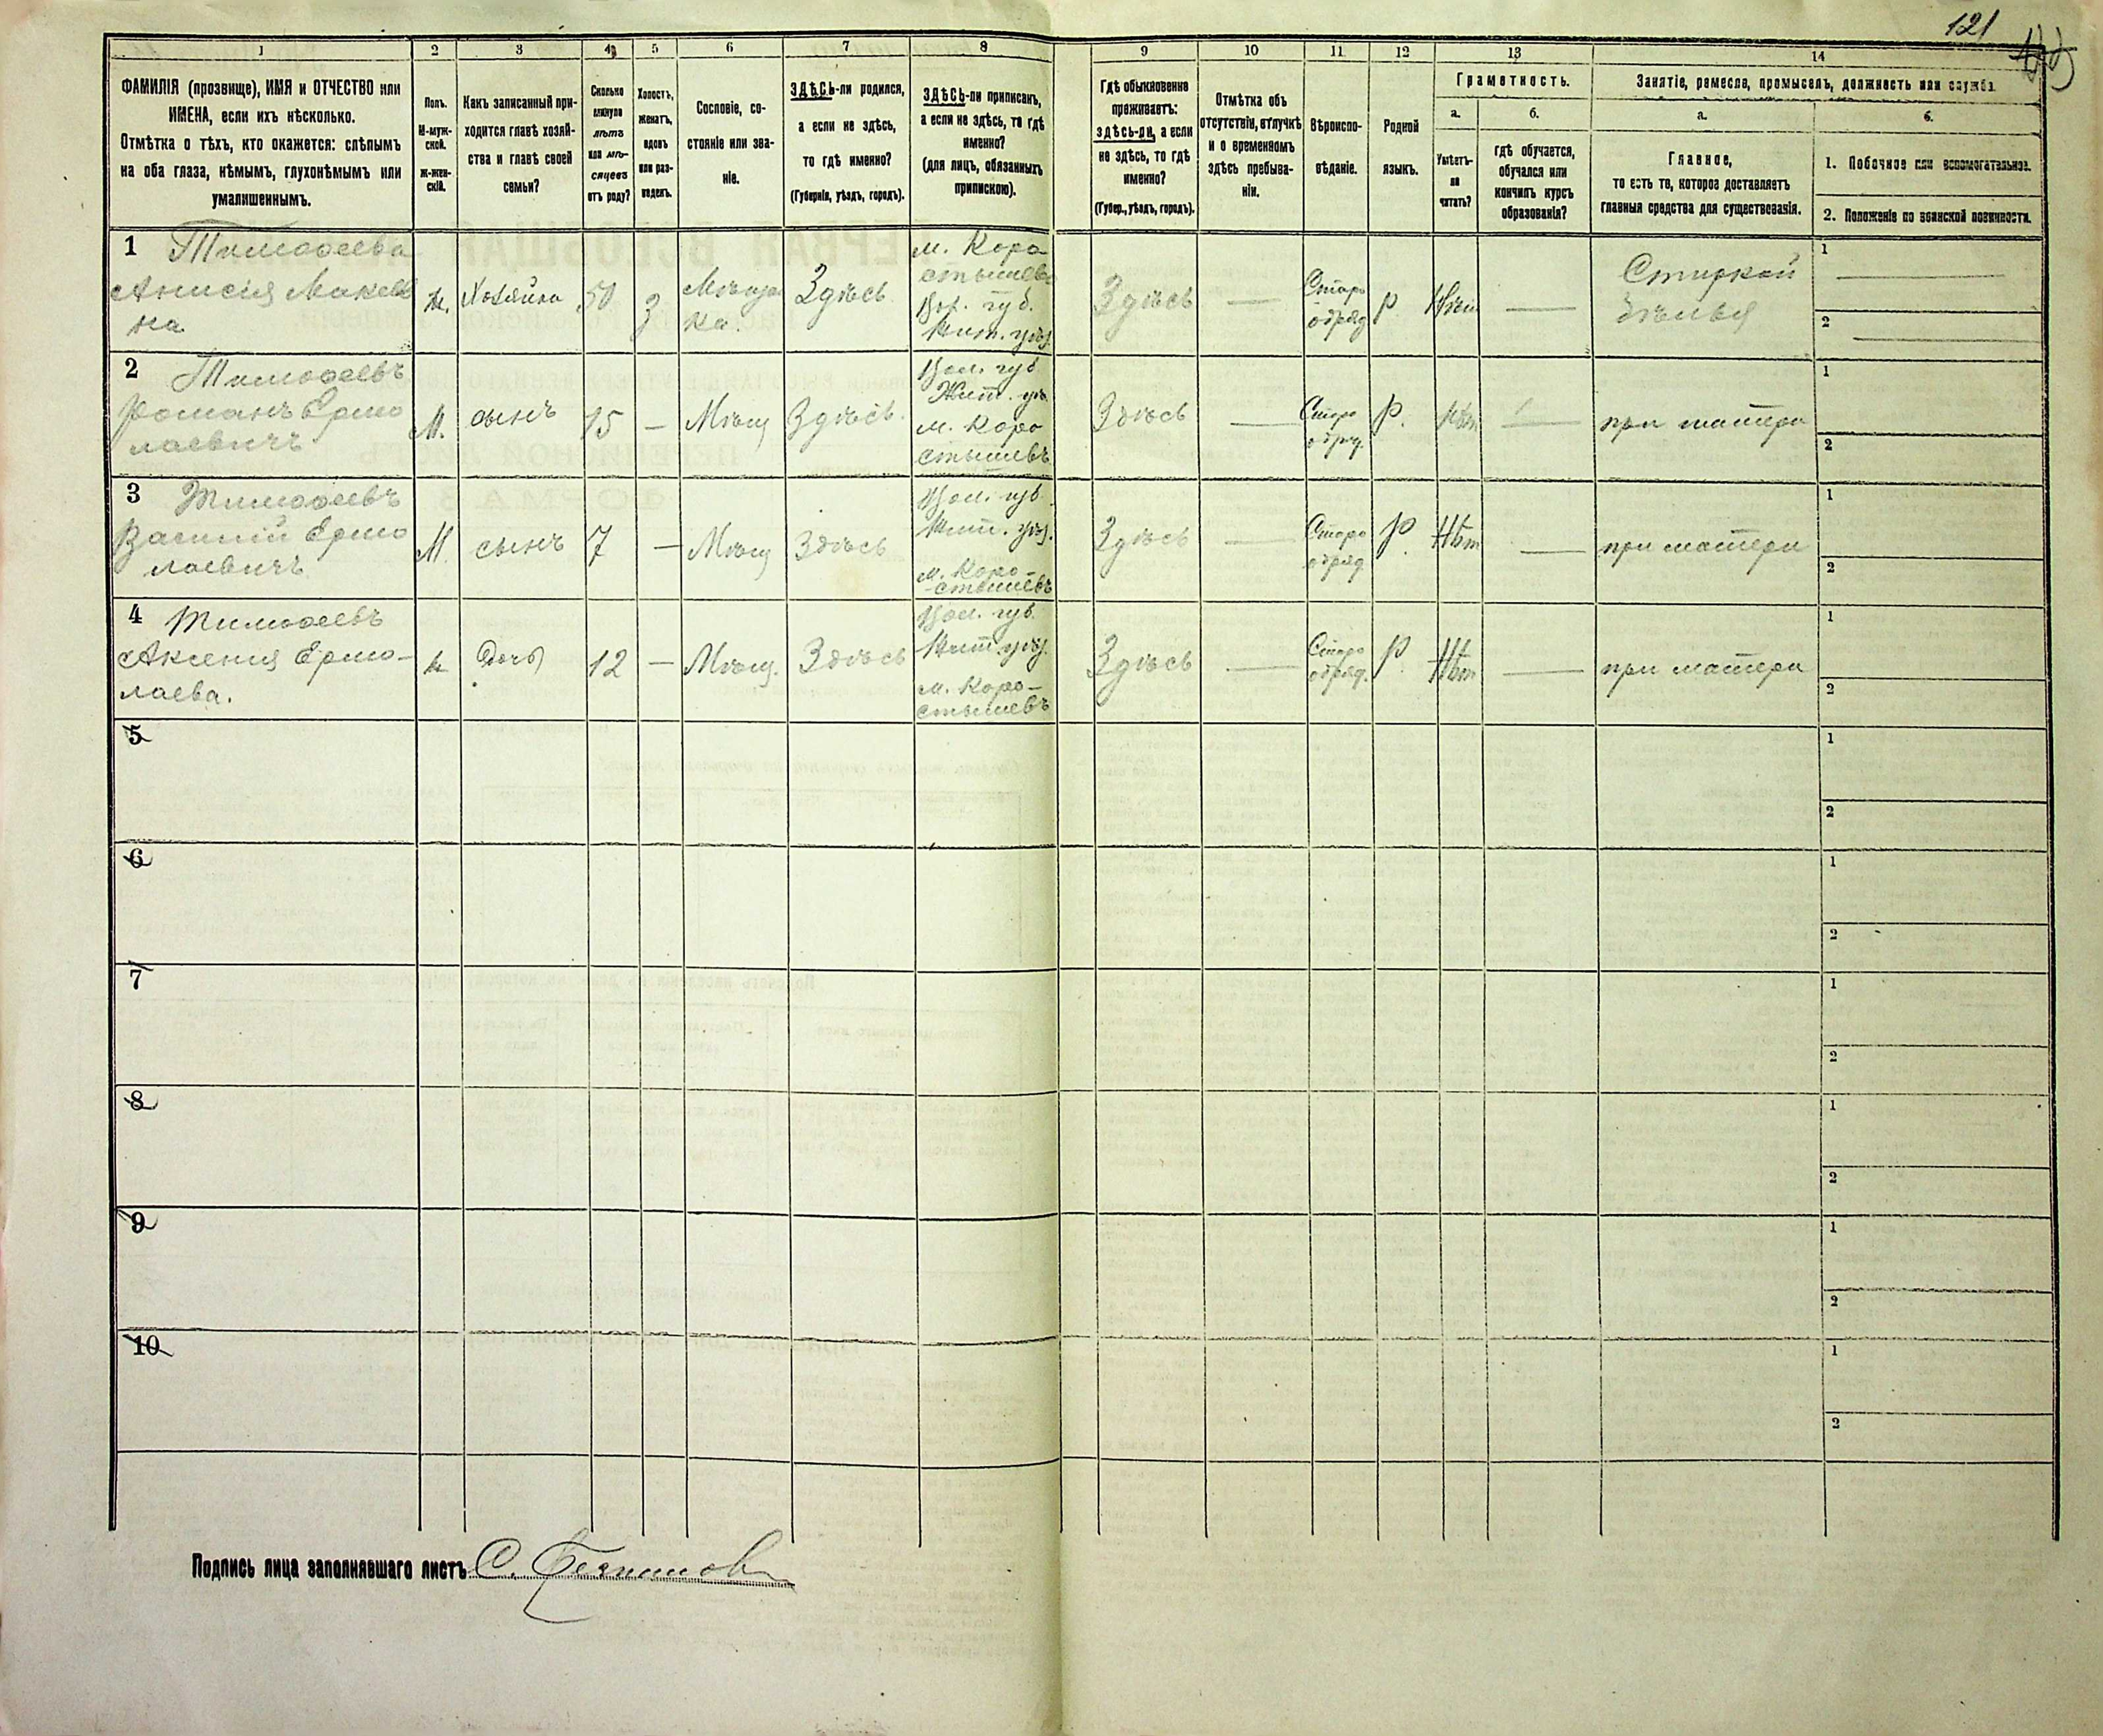 121
1 2 3 4 5 6 7 8 9 10 11 12 13 14
ФАМИЛІЯ (прозвище), ИМЯ и ОТЧЕСТВО или
ИМЕНА, если ихъ нѣсколько.
Отмѣтка о тѣхъ, кто окажется: слѣпымъ
на оба глаза, нѣмымъ, глухонѣмымъ или
умалишеннымъ.
Полъ.
М-муж-
ской.
Ж-жен-
скій.
Какъ записанный при-
ходится главѣ хозяй-
ства и главѣ своей
семьи?
Сколько
минуло
лѣтъ
или мѣ-
сяцевъ
отъ роду?
Холостъ,
женатъ,
вдовъ
или раз-
веденъ.
Сословіе, со-
стояніе или зва-
ніе.
ЗДѢСЬ-ли родился,
а если не здѣсь,
то гдѣ именно?
(Губернія, уѣздъ, городъ).
ЗДѢСЬ-ли приписанъ,
а если не здѣсь, то гдѣ
именно?
(для лицъ, обязанныхъ
припискою).
Гдѣ обыкновенно
проживаетъ:
здѣсь-ли, а если
не здѣсь, то гдѣ
именно?
(Губер., уѣздъ, городъ).
Отмѣтка объ
отсутствіи, отлучкѣ
и о временномъ
здѣсь пребыва-
ніи.
Вѣроиспо-
вѣданіе.
Родной
языкъ.
Грамотность.
а.
Умѣетъ-
ли
читать?
б.
гдѣ обучается,
обучался или
кончилъ курсъ
образованія?
Занятіе, ремесло, промыселъ, должность или служба.
а.
Главное,
то есть то, которое доставляетъ
главныя средства для существованія.
б.
1. Побочное или вспомогательное.
2. Положеніе по воинской повинности.
1 Тимофеева
Анисія Макее
на
ж. Хозяйка 50
Мѣща
ка.
Здѣсь
м. Коро
стышев
Вол. губ.
Жит. уѣз.
Здѣсь —
Старо
обряд
р. Нѣт —
Стиркой
бѣлья
1 —
2 —
2 Тимофеевъ
Романъ Ермо
лаевичъ
М. сынъ 15 — Мѣщ Здѣсь.
Вол. губ
Жит. уѣ
м. Коро
стышевъ
Здѣсь —
Старо
обряд.
р. Нѣт — при матери
1
2
3 Тимофеевъ
Василій Ермо
лаевичъ
М. сынъ 7 — Мѣщ Здѣсь
Вол. губ.
Жит. уѣз.
м. Коро-
стышевъ
Здѣсь —
Старо
обряд
р. Нѣт — при матери
1
2
4 Тимофеевъ
Аксенія Ермо-
лаева.
ж Дочь 12 — Мѣщ. Здѣсь
Вол. губ.
Жит. уѣз.
м. Коро-
стышевъ
Здѣсь —
Старо
обряд.
р. Нѣт — при матери
1
2
5
1
2
6
1
2
7
1
2
8
1
2
9
1
2
10
1
2
Подпись лица заполнявшаго листъ С.